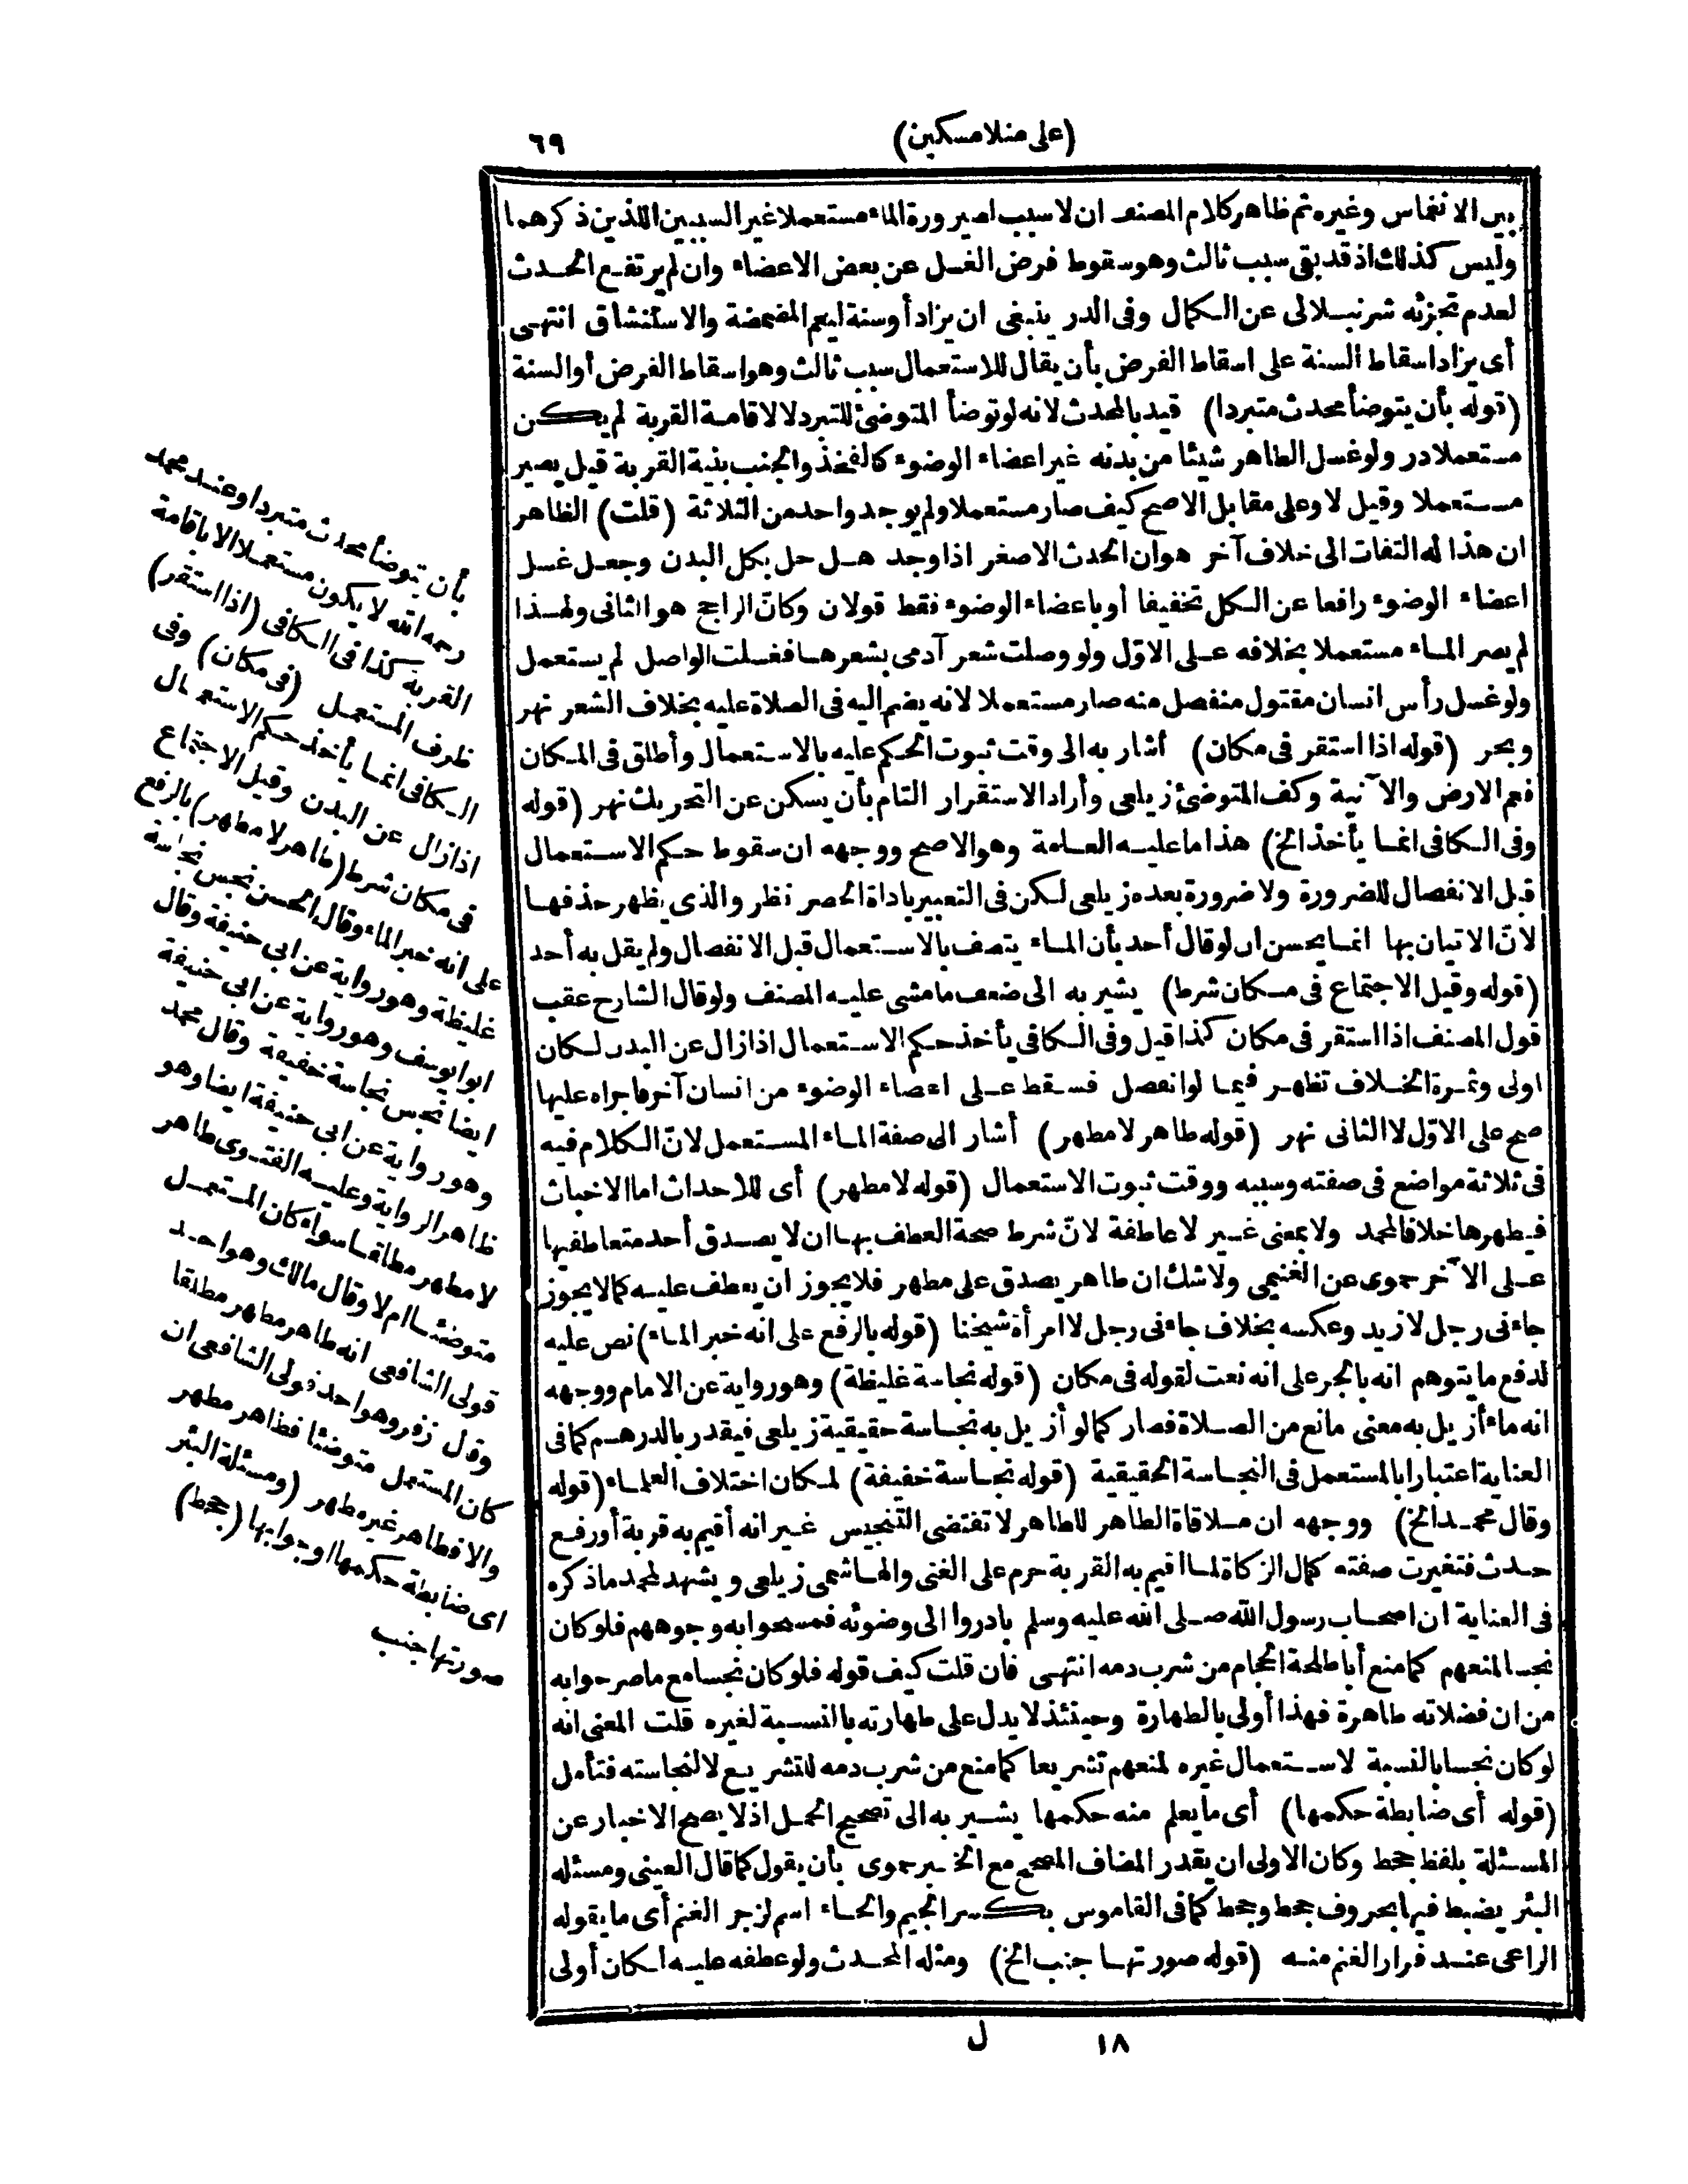 (على منلا مسكين)
٦٩
بين الانغماس وغيره ثم ظاهر كلام المصنف ان لا سبب لصيرورة الماء مستعملا غير السببين اللذين ذكرهما
وليس كذلك اذ قد بقى سبب ثالث وهو سقوط فرض الغسل عن بعض الاعضاء وان لم يرتفع الحدث
لعدم تجزئه شرنبلالى عن الكمال وفى الدر ينبغى ان يزاد أو سنة ليعم المضمضة والاستنشاق انتهى
أى يزاد اسقاط السنة على اسقاط الفرض بأن يقال للاستعمال سبب ثالث وهو اسقاط الفرض أو السنة
(قوله بأن يتوضأ محدث متبردا) قيد بالمحدث لانه لو توضأ المتوضئ للتبرد لا لاقامة القربة لم يكن
مستعملا در ولو غسل الطاهر شيئا من بدنه غير اعضاء الوضوء كالفخذ والجنب بنية القربة قيل يصير
مستعملا وقيل لا وعلى مقابل الاصح كيف صار مستعملا ولم يوجد واحد من الثلاثة (قلت) الظاهر
ان هذا له التفات الى خلاف آخر هو ان الحدث الاصغر اذا وجد هل حل بكل البدن وجعل غسل
اعضاء الوضوء رافعا عن الكل تخفيفا أو باعضاء الوضوء فقط قولان وكانّ الراجح هو الثانى ولهذا
لم يصر الماء مستعملا بخلافه على الاوّل ولو وصلت شعر آدمى بشعرها فغسلت الواصل لم يستعمل
ولو غسل رأس انسان مقتول منفصل منه صار مستعملا لانه يضم اليه فى الصلاة عليه بخلاف الشعر نهر
وبحر (قوله اذا استقر فى مكان) أشار به الى وقت ثبوت الحكم عليه بالاستعمال وأطلق فى المكان
فعم الارض والآنية وكف المتوضئ زيلعى وأراد الاستقرار التام بأن يسكن عن التحريك نهر (قوله
وفى الكافى انما يأخذ الخ) هذا ما عليه العامة وهو الاصح ووجهه ان سقوط حكم الاستعمال
قبل الانفصال للضرورة ولا ضرورة بعده زيلعى لكن فى التعبير باداة الحصر نظر والذى يظهر حذفها
لانّ الاتيان بها انما يحسن ان لو قال أحد بأن الماء يتصف بالاستعمال قبل الانفصال ولم يقل به أحد
(قوله وقيل الاجتماع فى مكان شرط) يشير به الى ضعف ما مشى عليه المصنف ولو قال الشارح عقب
قول المصنف اذا استقر فى مكان كذا قيل وفى الكافى يأخذ حكم الاستعمال اذا زال عن البدن لكان
اولى وثمرة الخلاف تظهر فيما لو انفصل فسقط على اعضاء الوضوء من انسان آخر فاجراه عليها
صح على الاوّل لا الثانى نهر (قوله طاهر لا مطهر) أشار الى صفة الماء المستعمل لانّ الكلام فيه
فى ثلاثة مواضع فى صفته وسببه ووقت ثبوت الاستعمال (قوله لا مطهر) أى للاحداث اما الاخباث
فيطهرها خلافا لمحمد ولا بمعنى غير لا عاطفة لانّ شرط صحة العطف بها ان لا يصدق أحد متعاطفيها
على الآخر حموى عن الغنيمى ولا شك ان طاهر يصدق على مطهر فلا يجوز ان يعطف عليه كما لا يجوز
جاءنى رجل لا زيد وعكسه بخلاف جاءنى رجل لا امرأة شيخنا (قوله بالرفع على انه خبر الماء) نص عليه
لدفع ما يتوهم انه بالجر على انه نعت لقوله فى مكان (قوله نجاسة غليظة) وهو رواية عن الامام ووجهه
انه ماء أزيل به معنى مانع من الصلاة فصار كما لو أزيل به نجاسة حقيقية زيلعى فيقدر بالدرهم كما فى
العناية اعتبارا بالمستعمل فى النجاسة الحقيقية (قوله نجاسة خفيفة) لمكان اختلاف العلماء (قوله
وقال محمد الخ) ووجهه ان ملاقاة الطاهر للطاهر لا تقتضى التنجيس غير انه أقيم به قربة أو رفع
حدث فتغيرت صفته كمال الزكاة لما اقيم به القربة حرم على الغنى والهاشمى زيلعى ويشهد لمحمد ما ذكره
فى العناية ان اصحاب رسول الله صلى الله عليه وسلم بادروا الى وضوئه فمسحوا به وجوههم فلو كان
نجسا لمنعهم كما منع أبا طلحة الحجام من شرب دمه انتهى فان قلت كيف قوله فلو كان نجسا مع ما صرحوا به
من ان فضلاته طاهرة فهذا أولى بالطهارة وحينئذ لا يدل على طهارته بالنسبة لغيره قلت المعنى انه
لو كان نجسا بالنسبة لاستعمال غيره لمنعهم تشريعا كما منع من شرب دمه للتشريع لا لنجاسته فتأمل
(قوله أى ضابطة حكمها) أى ما يعلم منه حكمها يشير به الى تصحيح الحمل اذ لا يصح الاخبار عن
المسئلة بلفظ جحط وكان الاولى ان يقدر المضاف المصحح مع الخبر حموى بأن يقول كما قال العينى ومسئله
البئر يضبط فيها بحروف جحط وجحط كما فى القاموس بكسر الجيم والحاء اسم لزجر الغنم أى ما يقوله
الراعى عند فرار الغنم منه (قوله صورتها جنب الخ) ومثله المحدث ولو عطفه عليه لكان أولى
بأن يتوضأ محدث متبردا وعند محمد
رحمه الله لا يكون مستعملا الا باقامة
القربة كذا فى الكافى (اذا استقر)
ظرف المستعمل (فى مكان) وفى
الكافى انما يأخذ حكم الاستعمال
اذا زال عن البدن وقيل الاجتماع
فى مكان شرط (طاهر لا مطهر) بالرفع
على انه خبر الماء وقال الحسن نجس نجاسة
غليظة وهو رواية عن ابى حنيفة وقال
ابو يوسف وهو رواية عن ابى حنيفة
ايضا نجس نجاسة خفيفة وقال محمد
وهو رواية عن ابى حنيفة ايضا وهو
ظاهر الرواية وعليه الفتوى طاهر
لا مطهر مطلقا سواء كان المستعمل
متوضئا ام لا وقال مالك وهو احد
قولى الشافعى انه طاهر مطهر مطلقا
وقال زفر وهو احد قولى الشافعى ان
كان المستعمل متوضئا فطاهر مطهر
والا فطاهر غير مطهر (ومسئلة البئر
اى ضابطة حكمها او جوابها (جحط)
صورتها جنب
١٨
ل